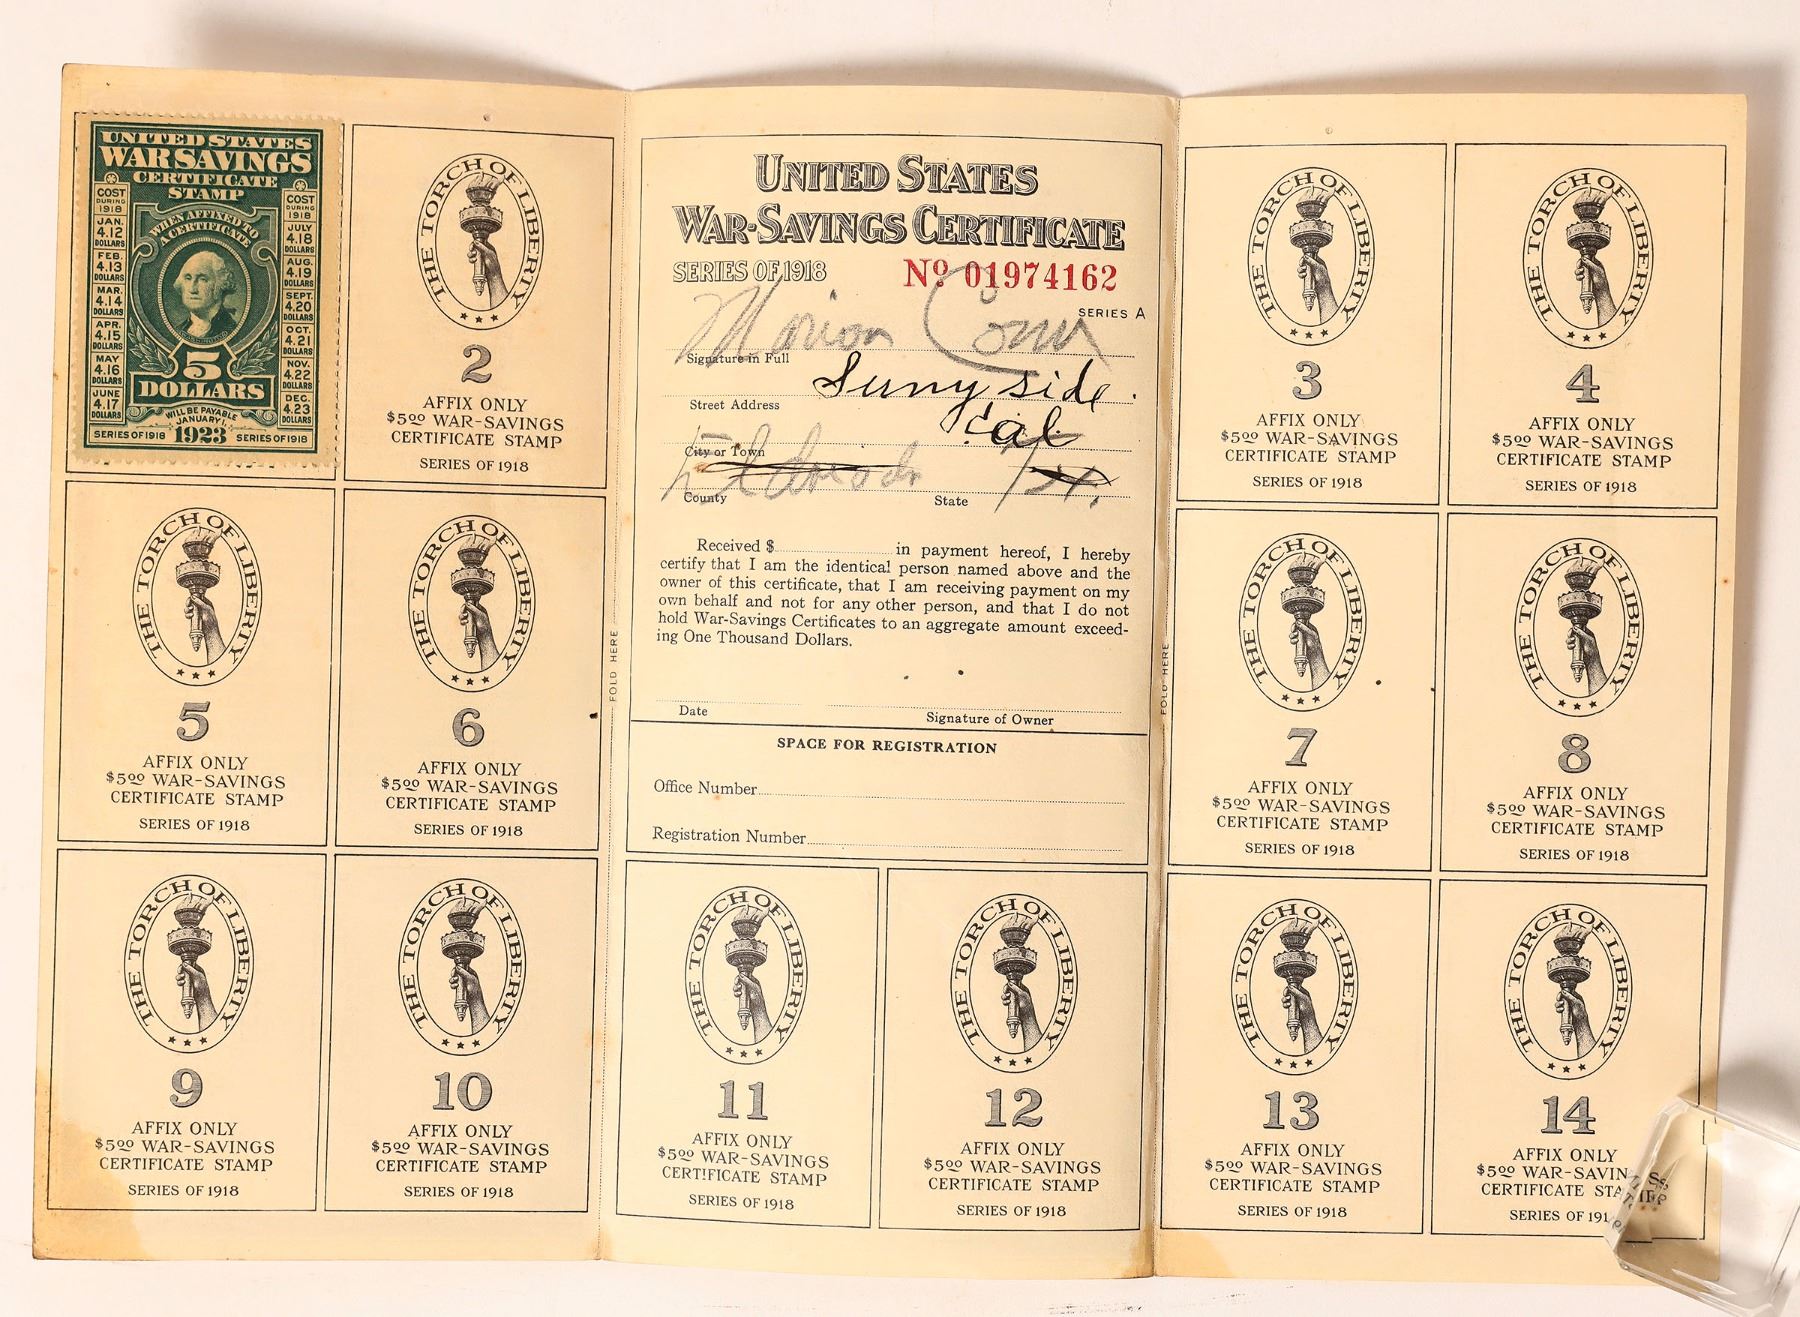 UNITED STATES
WAR SAVINGS
CERTIFICATE
STAMP
COST
DURING
1918
JAN.
4.12
DOLLARS
FEB.
4.13
DOLLARS
MAR.
4.14
DOLLARS
APR.
4.15
DOLLARS
MAY
4.16
DOLLARS
JUNE
4.17
DOLLARS
WHEN AFFIXED TO
A CERTIFICATE
COST
DURING
1918
JULY
4.18
DOLLARS
AUG.
4.19
DOLLARS
SEPT.
4.20
DOLLARS
OCT.
4.21
DOLLARS
NOV.
4.22
DOLLARS
DEC.
4.23
DOLLARS
5
DOLLARS
WILL BE PAYABLE
JANUARY 1,
SERIES OF 1918 1923 SERIES OF 1918
THE TORCH OF LIBERTY
2
AFFIX ONLY
$5.00 WAR-SAVINGS
CERTIFICATE STAMP
SERIES OF 1918
UNITED STATES
WAR-SAVINGS CERTIFICATE
SERIES OF 1918 No. 01974162
SERIES A
Marion Conn
Signature in Full
Sunnyside
Street Address
Cal
City or Town
Eldorado
County State
Received $ in payment hereof, I hereby
certify that I am the identical person named above and the
owner of this certificate, that I am receiving payment on my
own behalf and not for any other person, and that I do not
hold War-Savings Certificates to an aggregate amount exceed-
ing One Thousand Dollars.
Date Signature of Owner
SPACE FOR REGISTRATION
Office Number
Registration Number
FOLD HERE
FOLD HERE
THE TORCH OF LIBERTY
3
AFFIX ONLY
$5.00 WAR-SAVINGS
CERTIFICATE STAMP
SERIES OF 1918
THE TORCH OF LIBERTY
4
AFFIX ONLY
$5.00 WAR-SAVINGS
CERTIFICATE STAMP
SERIES OF 1918
THE TORCH OF LIBERTY
5
AFFIX ONLY
$5.00 WAR-SAVINGS
CERTIFICATE STAMP
SERIES OF 1918
THE TORCH OF LIBERTY
6
AFFIX ONLY
$5.00 WAR-SAVINGS
CERTIFICATE STAMP
SERIES OF 1918
THE TORCH OF LIBERTY
7
AFFIX ONLY
$5.00 WAR-SAVINGS
CERTIFICATE STAMP
SERIES OF 1918
THE TORCH OF LIBERTY
8
AFFIX ONLY
$5.00 WAR-SAVINGS
CERTIFICATE STAMP
SERIES OF 1918
THE TORCH OF LIBERTY
9
AFFIX ONLY
$5.00 WAR-SAVINGS
CERTIFICATE STAMP
SERIES OF 1918
THE TORCH OF LIBERTY
10
AFFIX ONLY
$5.00 WAR-SAVINGS
CERTIFICATE STAMP
SERIES OF 1918
THE TORCH OF LIBERTY
11
AFFIX ONLY
$5.00 WAR-SAVINGS
CERTIFICATE STAMP
SERIES OF 1918
THE TORCH OF LIBERTY
12
AFFIX ONLY
$5.00 WAR-SAVINGS
CERTIFICATE STAMP
SERIES OF 1918
THE TORCH OF LIBERTY
13
AFFIX ONLY
$5.00 WAR-SAVINGS
CERTIFICATE STAMP
SERIES OF 1918
THE TORCH OF LIBERTY
14
AFFIX ONLY
$5.00 WAR-SAVIN
CERTIFICATE STA
SERIES OF 191